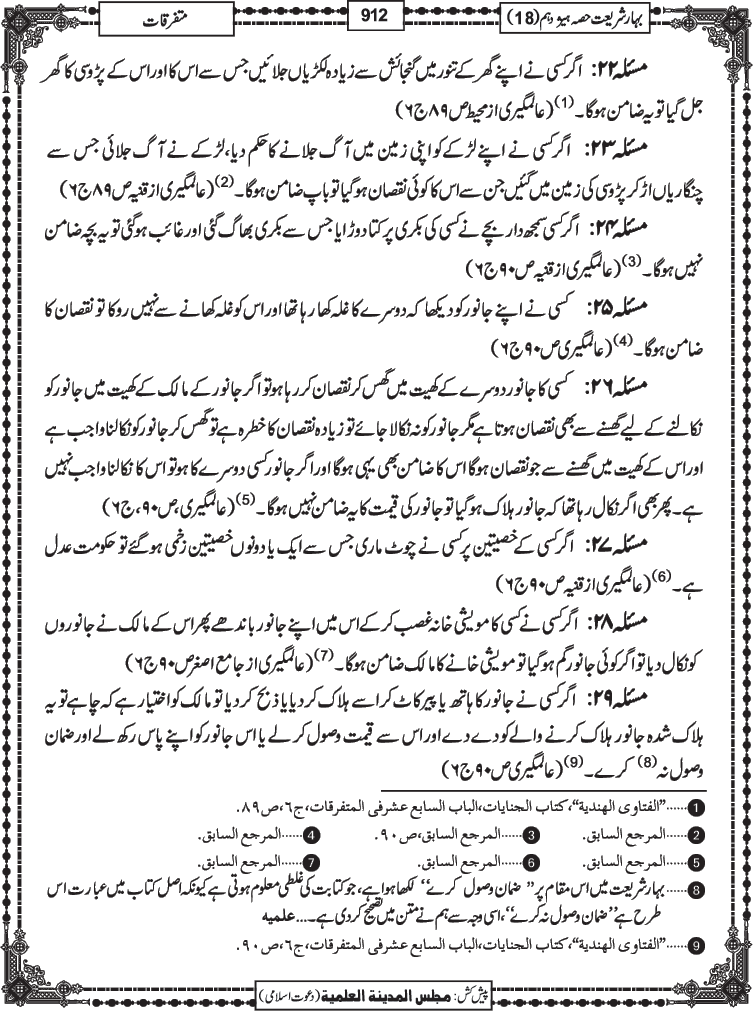 بہارِ شریعت حصہ ہیژدہم (18)
912
متفرقات
مسئلہ ۲۲: اگر کسی نے اپنے گھر کے تنور میں گنجائش سے زیادہ لکڑیاں جلائیں جس سے اس کا اور اس کے پڑوسی کا گھر
جل گیا تو یہ ضامن ہوگا۔(1) (عالمگیری از محیط ص ۸۹ ج ۶)
مسئلہ ۲۳: اگر کسی نے اپنے لڑکے کو اپنی زمین میں آگ جلانے کا حکم دیا، لڑکے نے آگ جلائی جس سے
چنگاریاں اڑ کر پڑوسی کی زمین میں گئیں جن سے اس کا کوئی نقصان ہوگیا تو باپ ضامن ہوگا۔(2) (عالمگیری از قنیہ ص ۸۹ ج ۶)
مسئلہ ۲۴: اگر کسی سمجھ دار بچے نے کسی کی بکری پر کتا دوڑایا جس سے بکری بھاگ گئی اور غائب ہوگئی تو یہ بچہ ضامن
نہیں ہوگا۔(3) (عالمگیری از قنیہ ص ۹۰ ج ۶)
مسئلہ ۲۵: کسی نے اپنے جانور کو دیکھا کہ دوسرے کا غلہ کھا رہا تھا اور اس کو غلہ کھانے سے نہیں روکا تو نقصان کا
ضامن ہوگا۔(4) (عالمگیری ص ۹۰ ج ۶)
مسئلہ ۲۶: کسی کا جانور دوسرے کے کھیت میں گھس کر نقصان کر رہا ہو تو اگر جانور کے مالک کے کھیت میں جانور کو
نکالنے کے لیے گھسنے سے بھی نقصان ہوتا ہے مگر جانور کو نہ نکالا جائے تو زیادہ نقصان کا خطرہ ہے تو گھس کر جانور کو نکالنا واجب ہے
اور اس کے کھیت میں گھسنے سے جو نقصان ہوگا اس کا ضامن بھی یہی ہوگا اور اگر جانور کسی دوسرے کا ہو تو اس کا نکالنا واجب نہیں
ہے۔ پھر بھی اگر نکال رہا تھا کہ جانور ہلاک ہوگیا تو جانور کی قیمت کا یہ ضامن نہیں ہوگا۔(5) (عالمگیری، ص ۹۰، ج ۶)
مسئلہ ۲۷: اگر کسی کے خصیتین پر کسی نے چوٹ ماری جس سے ایک یا دونوں خصیتین زخمی ہوگئے تو حکومت عدل
ہے۔(6) (عالمگیری از قنیہ ص ۹۰ ج ۶)
مسئلہ ۲۸: اگر کسی نے کسی کا مویشی خانہ غصب کر کے اس میں اپنے جانور باندھے پھر اس کے مالک نے جانوروں
کو نکال دیا تو اگر کوئی جانور گم ہوگیا تو مویشی خانے کا مالک ضامن ہوگا۔(7) (عالمگیری از جامع اصغر ص ۹۰ ج ۶)
مسئلہ ۲۹: اگر کسی نے جانور کا ہاتھ یا پیر کاٹ کر اسے ہلاک کر دیا یا ذبح کر دیا تو مالک کو اختیار ہے کہ چاہے تو یہ
ہلاک شدہ جانور ہلاک کرنے والے کو دے دے اور اس سے قیمت وصول کر لے یا اس جانور کو اپنے پاس رکھ لے اور ضمان
وصول نہ(8) کرے۔(9) (عالمگیری ص ۹۰ ج ۶)
1 ......"الفتاوی الھندیة"، کتاب الجنایات، الباب السابع عشر فی المتفرقات، ج٦، ص۸۹.
2 ......المرجع السابق. 3 ......المرجع السابق، ص۹۰. 4 ......المرجع السابق.
5 ......المرجع السابق. 6 ......المرجع السابق. 7 ......المرجع السابق.
8 ......بہارِ شریعت میں اس مقام پر "ضمان وصول کرے" لکھا ہوا ہے، جو کتابت کی غلطی معلوم ہوتی ہے کیونکہ اصل کتاب میں عبارت اس
طرح ہے "ضمان وصول نہ کرے"، اسی وجہ سے ہم نے متن میں تصحیح کر دی ہے۔...علمیه
9 ......"الفتاوی الھندیة"، کتاب الجنایات، الباب السابع عشر فی المتفرقات، ج٦، ص۹۰.
پیش کش: مجلس المدینة العلمیة (دعوت اسلامی)